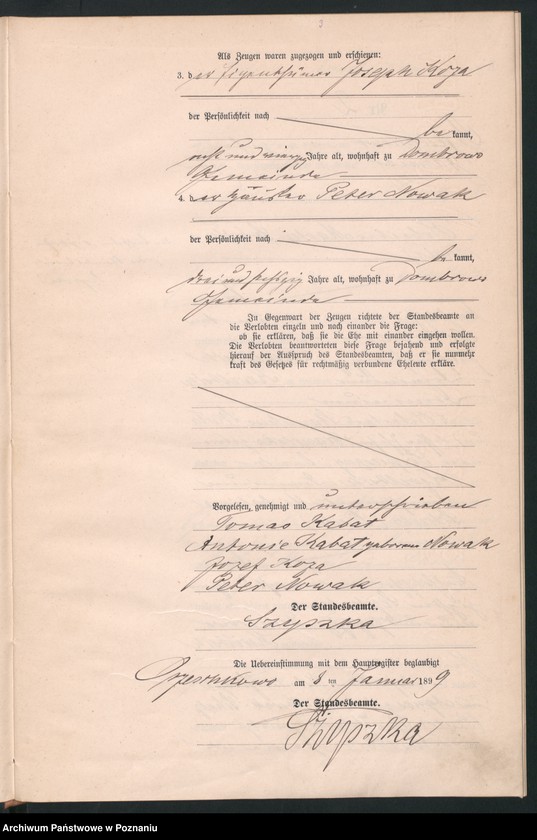 Als Zeugen waren zugezogen und erschienen:
3. der Eigenthümer Joseph Koza
der Persönlichkeit nach
be kannt,
acht und vierzig Jahre alt, wohnhaft zu Dombrowo
Gemeinde
4. der Häusler Peter Nowak
der Persönlichkeit nach
be kannt,
drei und sechzig Jahre alt, wohnhaft zu Dombrowo
Gemeinde
In Gegenwart der Zeugen richtete der Standesbeamte an
die Verlobten einzeln und nach einander die Frage:
ob sie erklären, daß sie die Ehe mit einander eingehen wollen.
Die Verlobten beantworteten diese Frage bejahend und erfolgte
hierauf der Ausspruch des Standesbeamten, daß er sie nunmehr
kraft des Gesetzes für rechtmäßig verbundene Eheleute erkläre.
Vorgelesen, genehmigt und unterschrieben
Tomas Kabat
Antonie Kabat geborene Nowak
Jozef Koza
Peter Nowak
Der Standesbeamte.
Szyszka
Die Uebereinstimmung mit dem Hauptregister beglaubigt
am 8 ten Januar 1899
Der Standesbeamte.
Szyszka
Archiwum Państwowe w Poznaniu